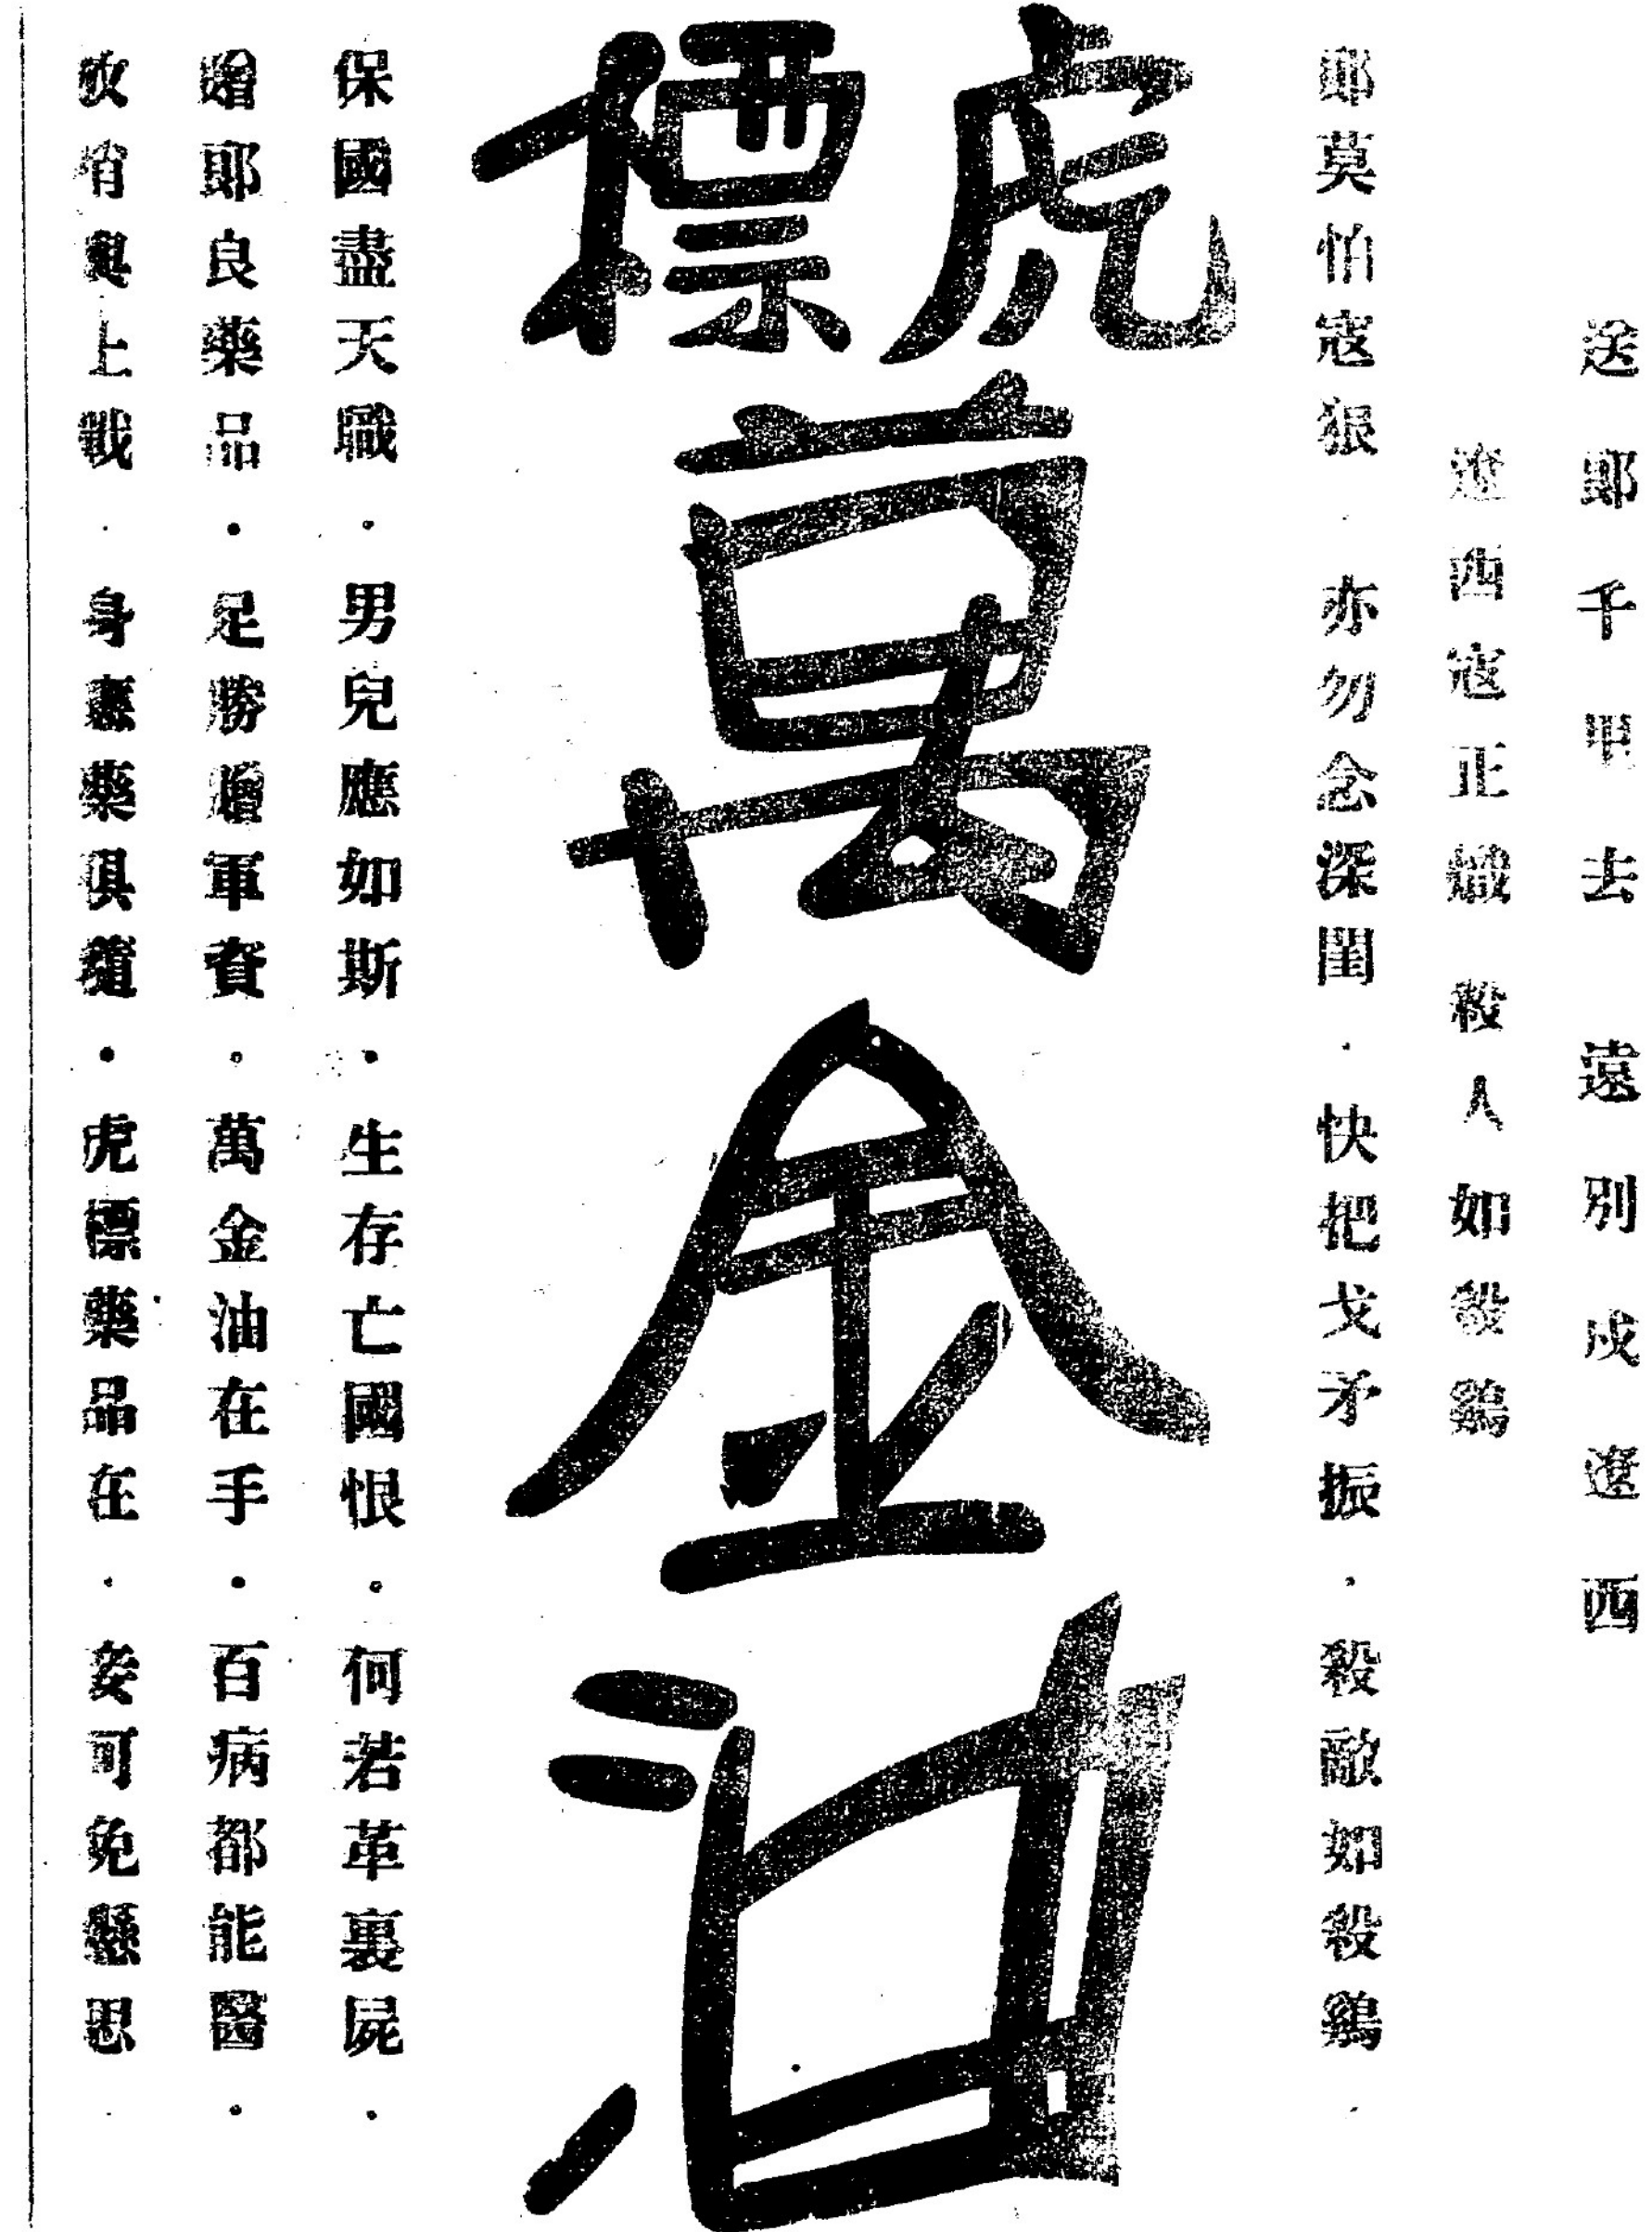 送郎千里去 遠別戍遼西
遼西寇正熾 殺人如殺鷄
郎莫怕寇狠．亦勿念深閨．快把戈矛振．殺敵如殺鷄．
虎標
萬金油
保國盡天職。男兒應如斯．生存亡國恨。何若革裏屍．
贈郎良藥品．足勝贈軍資。萬金油在手．百病都能醫．
收拾與上戰．身裹藥俱隨．虎標藥品在．妾可免懸思．